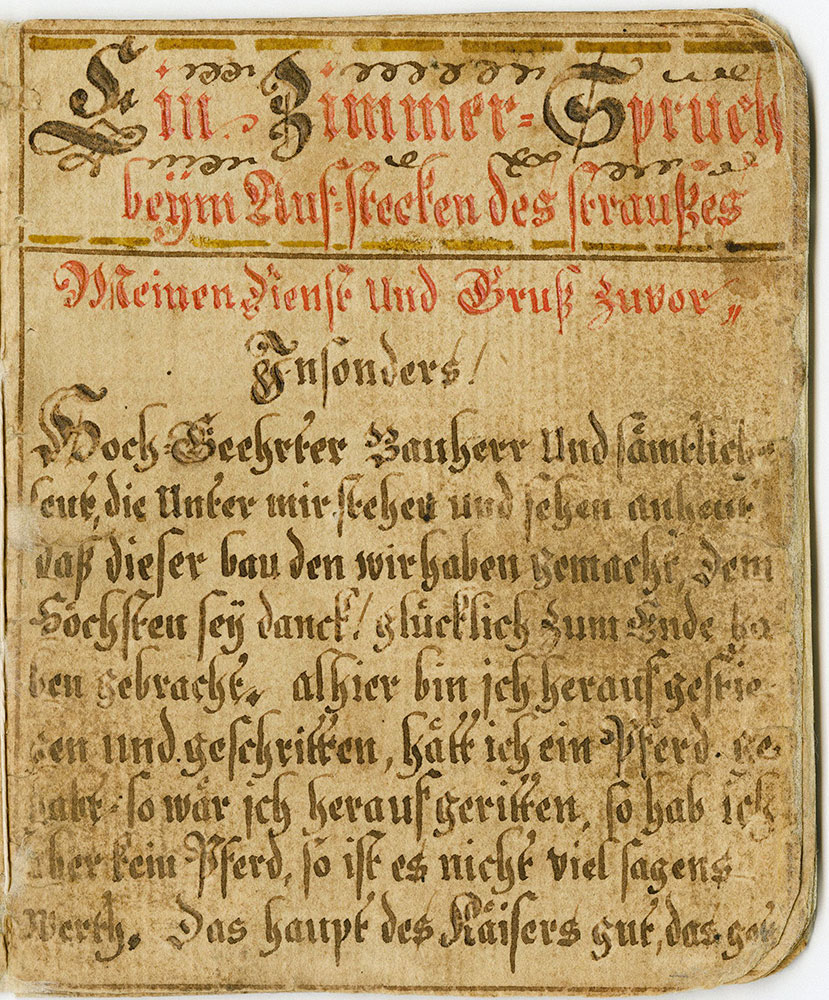 Ein Zimmer=Spruch
beÿm Auf=stecken des straußes
Meinen Dienst Und Gruß Zuvor„
Insonders!
Hoch=Geehrter Bauherr Und sämtlich=
leut, die Unter mir stehen und sehen anheut
daß dieser bau den wir haben gemacht, Dem
Höchsten seÿ danck! glücklich Zum Ende ha
ben gebracht. alhier bin jch herauf gestie=
gen und geschritten, hätt ich ein Pferd ge=
habt so wär jch herauf geritten, so hab ich
aber kein Pferd, so ist es nicht viel sagens
Werth. Das haupt des Käisers gut, das